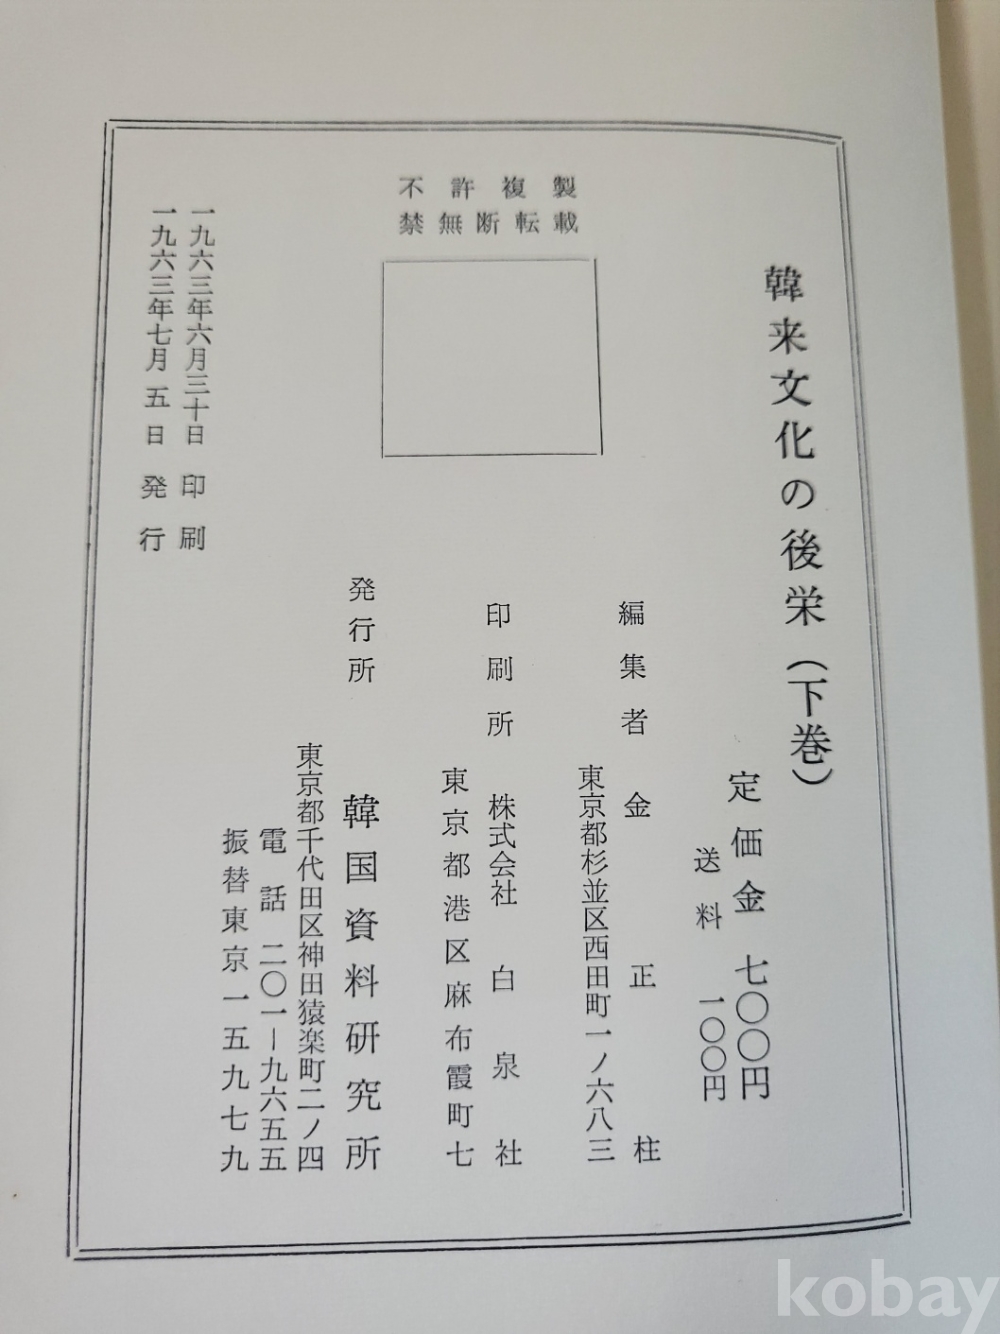 韓来文化の後栄（下巻）
定価金 七〇〇円
送料 一〇〇円
編集者 金正柱
東京都杉並区西田町一ノ六八三
印刷所 株式会社 白泉社
東京都港区麻布霞町七
発行所 韓国資料研究所
東京都千代田区神田猿楽町二ノ四
電話 二〇一ー九六五五
振替東京一五九七九
不許複製
禁無断転載
一九六三年六月三十日 印刷
一九六三年七月五日 発行
kobay